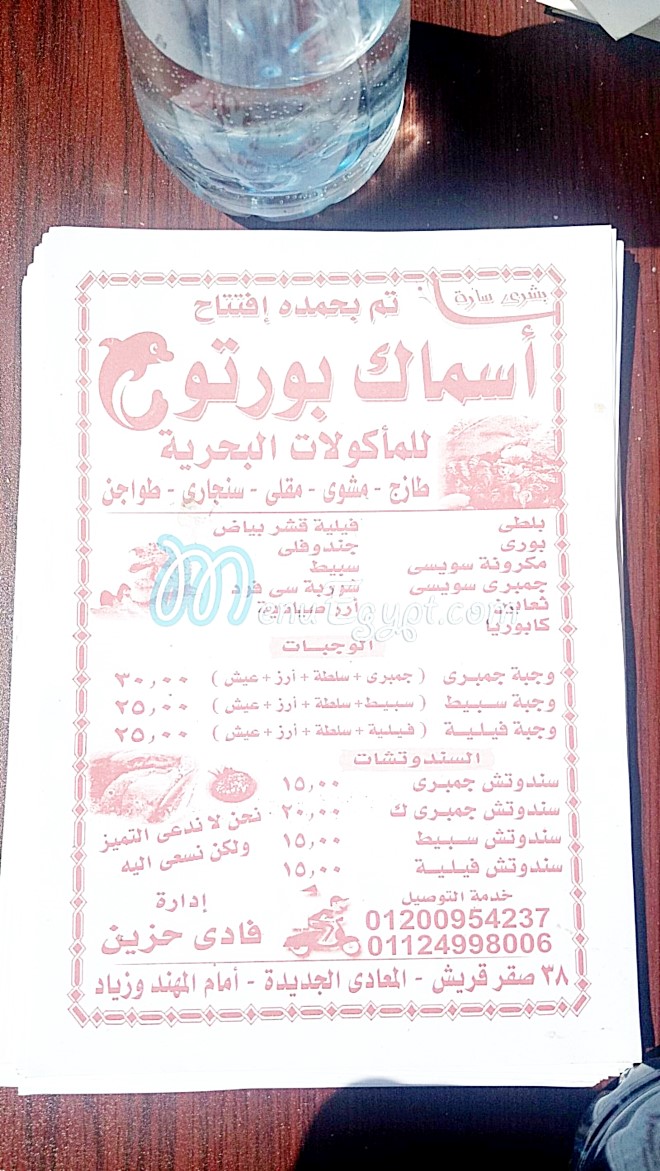 بشرى سارة
تم بحمده إفتتاح
أسماك بورتو
للمأكولات البحرية
طازج - مشوى - مقلى - سنجارى - طواجن
بلطى
بورى
مكرونة سويسى
جمبرى سويسى
ثعابين
كابوريا
فيلية قشر بياض
جندوفلى
سبيط
شوربة سى فود
أرز صيادية
MenuEgypt.com
الوجبات
وجبة جمبرى ( جمبرى + سلطة + أرز + عيش ) ٣٠,٠٠
وجبة سبيط ( سبيط + سلطة + أرز + عيش ) ٢٥,٠٠
وجبة فيلية ( فيلية + سلطة + أرز + عيش ) ٢٥,٠٠
السندوتشات
سندوتش جمبرى ١٥,٠٠
سندوتش جمبرى ك ٢٠,٠٠
سندوتش سبيط ١٥,٠٠
سندوتش فيلية ١٥,٠٠
نحن لا ندعى التميز
ولكن نسعى اليه
خدمة التوصيل
01200954237
01124998006
إدارة
فادى حزين
٣٨ صقر قريش - المعادى الجديدة - أمام المهند وزياد